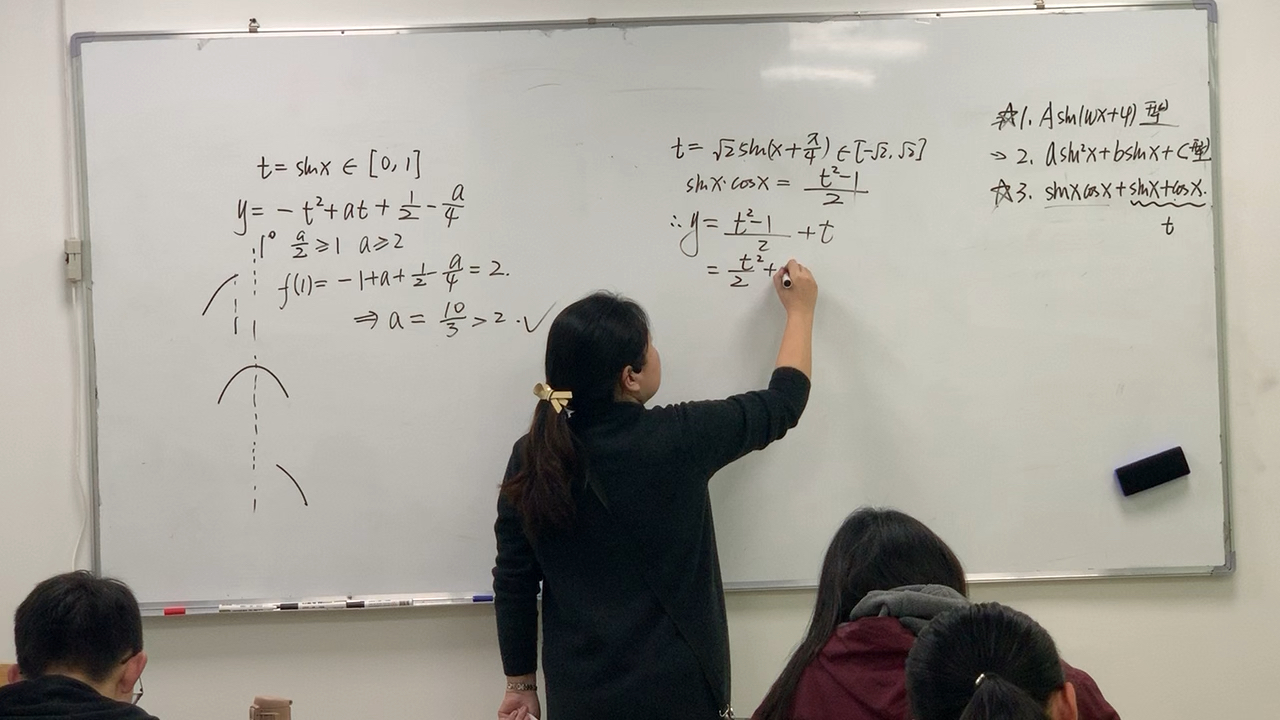 t = sinx ∈ [0, 1]
y = - t² + at + 1/2 - a/4
1° a/2 ≥ 1 a ≥ 2
f(1) = -1 + a + 1/2 - a/4 = 2.
⇒ a = 10/3 > 2 . ✓
t = √2 sin(x + π/4) ∈ [-√2, √2]
sinx·cosx = (t² - 1)/2
∴ y = (t² - 1)/2 + t
= t²/2 +
☆1. Asin(ωx+φ) 型
→ 2. asin²x + bsinx + c 型
☆3. sinxcosx + sinx + cosx.
t